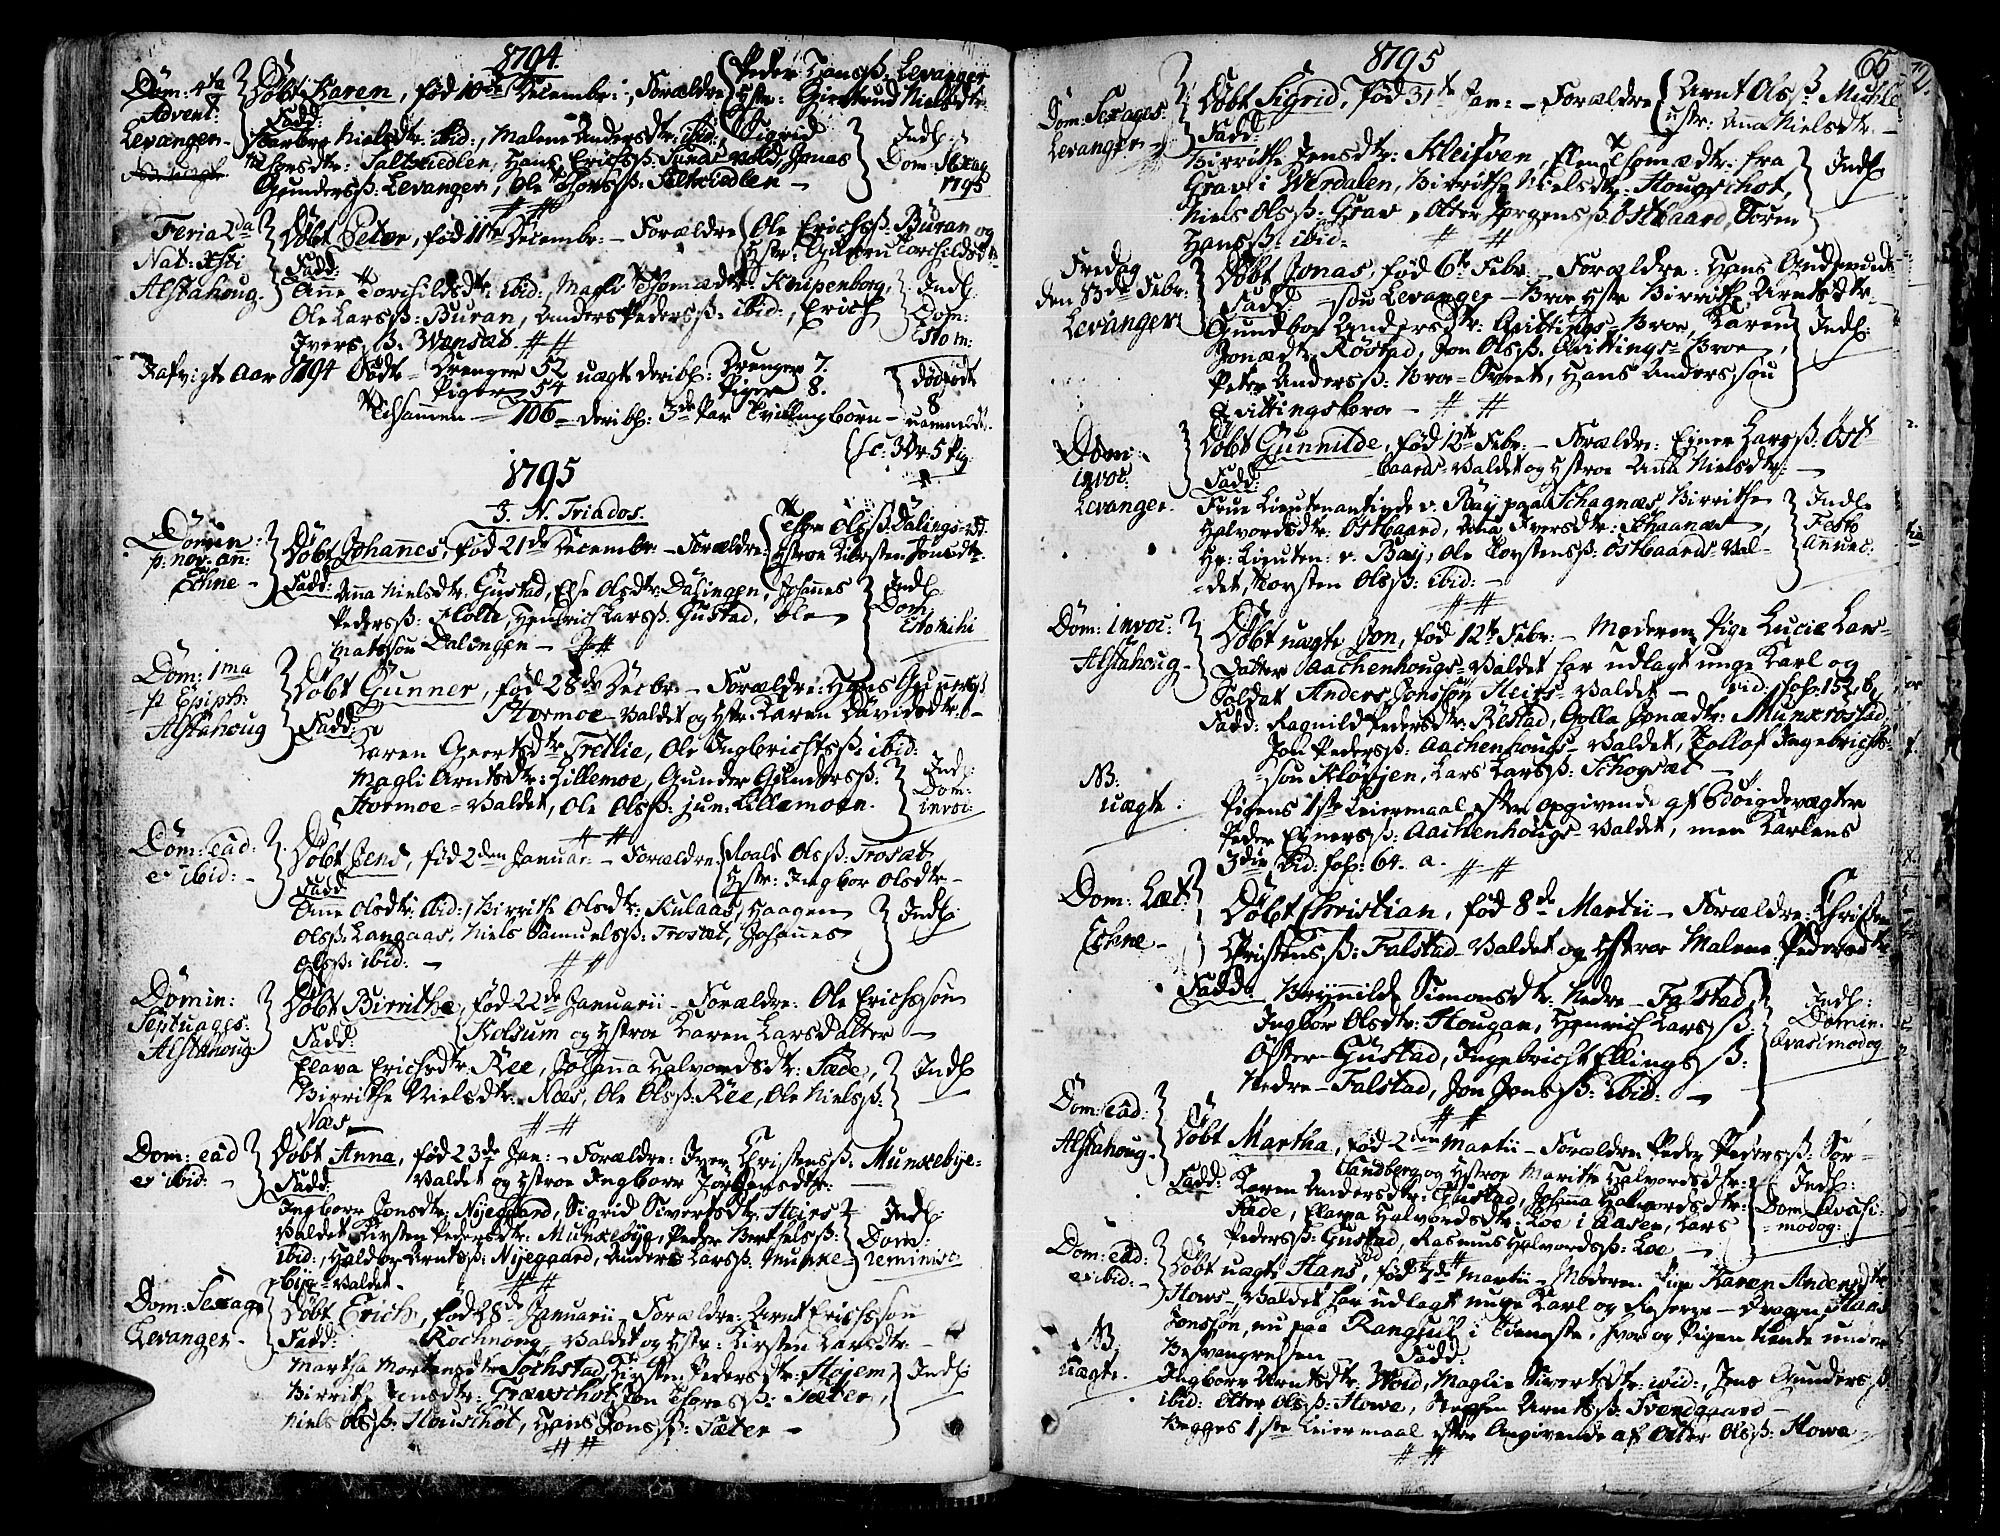 1794
Dom: 4ta Advent: Levanger
Døbt Karen, fød 10de Decembr:, Forældre Peder Hansß: Levanger
Hstr: Giertrud Nielsdtr:
Fadd: Barbro Nielsdtr: ibid:, Malene Andersdtr: ibid:, Sigrid
Thorsdtr: Saltviedlen, Hans Erichsß: Sunds Vald, Jonas
Gundersß: Levanger, Ole Thorsß: Saltviedlen
Indl: Dom: Sexag 1795
Feria 2da Nat: Xsti Alstahoug
Døbt Peter, fød 11te Decembr: Forældre Ole Erichsß: Buran og
Hstr: Guruu Torchildsdtr:
Fadd:
Anne Torchildsdtr: ibid:, Magli Thomædtr: Knipenborg,
Ole Larsß: Buran, Anders Pedersß: ibid:, Erich
Iversß: Wansat
Indl: Dom: Esto m:
I afvigte Aar 1794 Fødte Drenger 52 uægte deribl: Drenger 7.
Piger 54 Piger 8.
Tilsamen 106 deribl: 3de Par Tvillingbørn
dødfødte 8 uanmeldt
sc: 3 Dr: 5 Pig:
1795
J. N. Triados.
Domin: p: nov: an: Echne
Døbt Johannes, fød 21de Decembr: Forældre: Thore Olsß: Dalings
Hstroe Kirsten Jonsdtr:
Fadd: Anna Nielsdtr: Gustad, Else Olsdtr: Dalingen, Johannes
Pedersß: Holte, Henrich Larsß: Gustad, Ole
Matssøn Dalingen
Indl: Dom Estomihi
Dom: 1ma p: Epiph: Alstahoug
Døbt Gunner, fød 28de Decbr: Forældre: Hans Gunnersß:
Stormoe-Valdet og Hstr: Karen Davidsdtr:
Fadd:
Karen Geertsdtr: Tretlie, Ole Ingbrichtsß: ibid:
Magli Arntsdtr: Lillemoe, Gunder Gundersß:
Stormoe-Valdet, Ole Olsß: jun: Lillemoen
Indl: Dom: invoc:
Dom: ead: et ibid:
Døbt Jens, fød 2den Januar: Forældre: Roald Olsß: Trosat
Hstr: Ingbor Olsdtr
Fadd
Anne Olsdtr: ibid:, Birrithe Olsdtr: Kulaas, Haagen
Olsß: Langaas, Niels Samuelsß: Trosat, Johannes
Olsß: ibid:
Indl:
Domin: Septuages: Alstahoug
Døbt Birrithe, fød 22de Januarii Forældre: Ole Erichssøn
Kolsum og Hstroe Karen Larsdatter
Fadd:
Elava Erichsdtr: Ree, Johanna Halvordsdtr: Fade,
Birrithe Nielsdtr: Næs, Ole Olsß: Ree, Ole Nielsß:
Næs
Indl
Dom: ead et ibid:
Døbt Anna, fød 23de Jan: Forældre: Iver Christensß: Munkebye-
Valdet og Hstroe Ingborr
Fadd:
Ingborr Jonsdtr: Nijegaard, Sigrid Sivertsdtr: Heirs
Valdet, Kirsten Pedersdtr: Munkebye, Peder Berthelsß:
ibid:, Haldor Arntsß: Nijegaard, Anders Larsß: Munke-
bye-Valdet
Indl: Dom: Reminisc:
Dom: Sexag Levanger
Døbt Erich, fød 28de Januarii Forældre: Arnt Erichssøn
Rochmong-Valdet og Hstr: Kirsten Larsdtr
Fadd:
Martha Mortensdtr: Sochstad, Kirsten Pedersdtr: Høiem,
Birrith Jensdtr: Grævschot, Jon Thoresß: Sæter,
Niels Olsß: Houschot, Hans Jonsß: Sæter
Indl:
1795
65
Dom: Sexages: Levanger
Døbt Sigrid, fød 31te Jan: Forældre Arnt Olsß: Muhle
Hstr: Anna Nielsdtr:
Fadd:
Birrithe Jensdtr: Kleifven, Elen Thomædtr: fra
Grav i Werdalen, Birrithe Nielsdtr: Hougschot,
Niels Olsß: Grav, Otter Jørgensß: Østbaard, Søren
Hansß: ibid:
Indl:
Fredag den 13de Febr: Levanger
Døbt Jonas, fød 6te Febr: Forældre: Hans Gudmund-
søn Levanger-Broe Hstr Birrithe Arntsdtr
Fadd
Gundbor Andersdtr: Qvittings-Broe, Karen
Jonædtr: Røstad, Jon Olsß: Qvittings-Broe,
Peter Andersß: Broe-Svent, Hans Anderssøn
Qvittingsbroe
Indl:
Dom: invoc: Levanger
Døbt Gunnilde, fød 12te Febr: Forældre: Einer Larsß: Øst
baards-Valdet og Hstroe Anna Nielsdtr:
Fadd:
Frue Lieutenantinde v: Bay paa Schagnæs, Birrithe
Halvordsdtr: Østbaard, Anna Iversdtr: Schaanæs,
Hr: Lieuten: v: Bay, Ole Torstensß: Østbaards-Val-
det, Torsten Olsß: ibid:
Indl Festo Annunc:
Dom: invoc: Alstahoug
Døbt uægte Jon, fød 12te Febr: Moderen Pige Lucie Lars-
Datter Aachenhougs-Valdet har udlagt unge Karl og
Soldat Anders Jonssøn Heirs-Valdet vid: fol: 152. b.
Fadd: Ragnild Pedersdtr: Restad, Golla Jonædtr: Munkrøstad,
Jon Pedersß: Aachenhougs-Valdet, Tollof Ingebrichts-
søn Kløvjen, Lars Larsß: Schogsæt
NB. uægte
Pigens 1ste Leiermaal efter Opgivende af
Peder Einersß: Aachenhougs Valdet, men Karlens
3die ibid: fol: 64. a.
Dom: Læt: Echne
Døbt Christian, fød 8de Martii Forældre: Christen
Christensß: Falstad-Valdet og Hstroe Malene Pedersdtr
Fadd: Brynnilde Simonsdtr: Nedre-Falstad,
Ingbor Olsdtr: Hougan, Henrich Larsß:
Øster-Gustad, Ingebricht Ellingsß:
Nedre-Falstad, Jon Jonsß: ibid:
Indl: Domin: Qvasimodog
Dom: ead: Alstahoug
Døbt Martha, fød 2den Martii Forældre Peder Pedersß: Sor-
Sandberg og Hstroe Marithe Halvordsdtr:
Fadd: Karen Andersdtr: Gustad, Johanna Halvordsdtr:
Fade, Elava Halvordsdtr: Loe i Aasen, Lars
Pedersß: Gustad, Rasmus Halvordsß: Loe
Indl: Dom Qvasi-modog:
Dom: ead: et ibid:
Døbt uægte Hans, fød 4de Martii Moderen Pige Karen Andersdtr
Hows-Valdet har udlagt unge Karl og Reserve-Dragon Haas
Jonssøn, nu paa Rangsul i Tieneste, hvor og Pigen tiente under
Besvangrelsen Fadd:
NB. uægte
Ingborr Arntsdtr: Werd, Maglie Sivertsdtr: ibid:, Jens Gundersß
ibid: Otter Olsß: Howe, Arntsß: Svendgaard
Begges 1ste Leiermaal efter Angivende af Otter Olsß: Howe